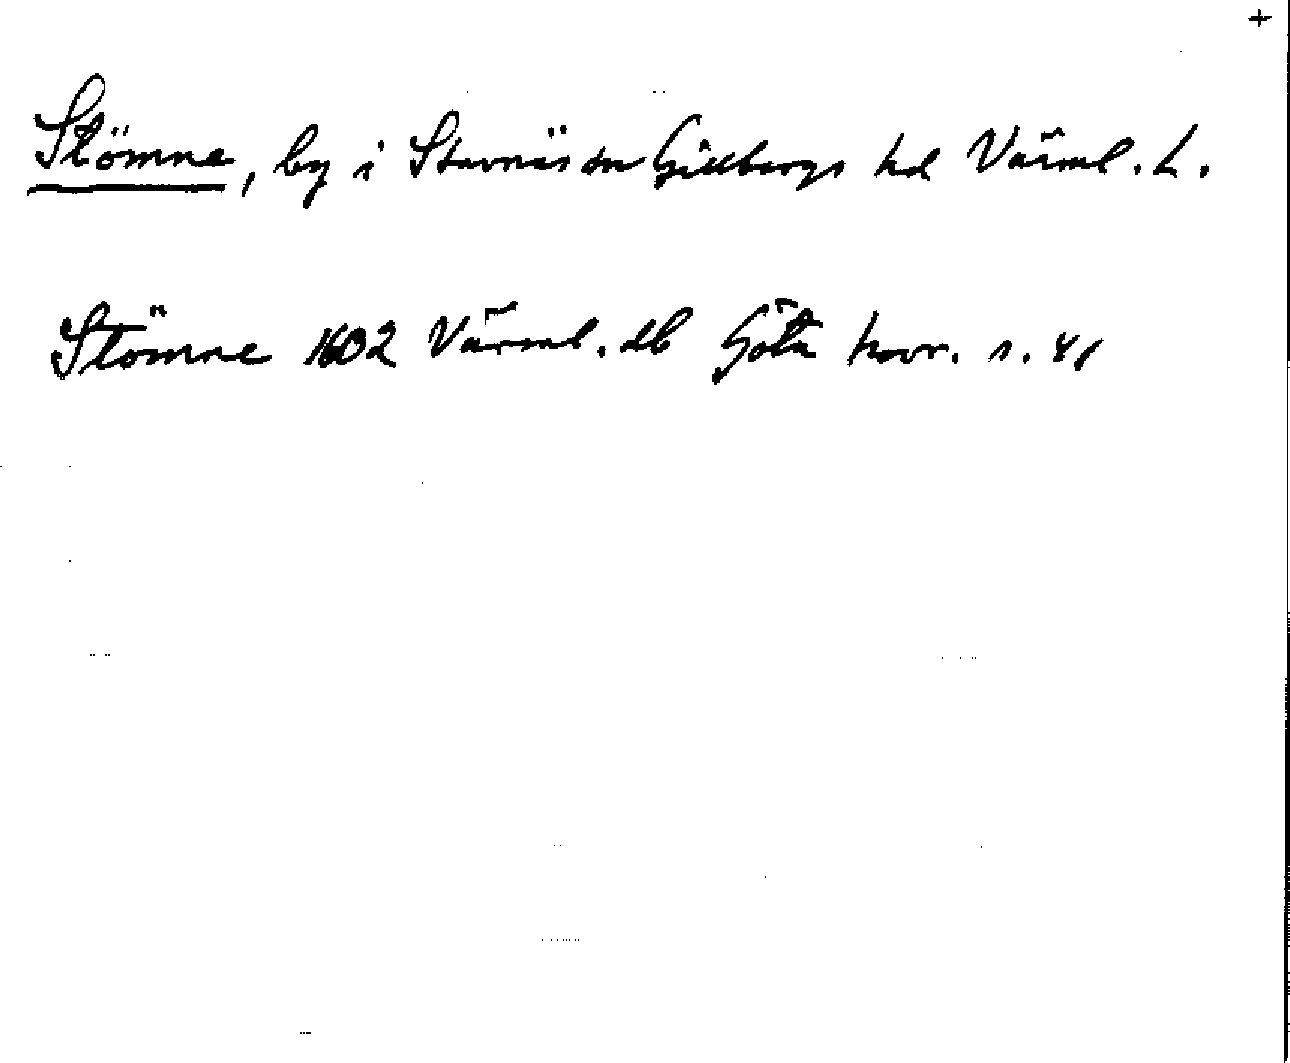 +
Stömne, by i Stavnäs sn Gillbergs hd Värml. L.
Stömne 1602 Värml. db Göta hovr. s. 41